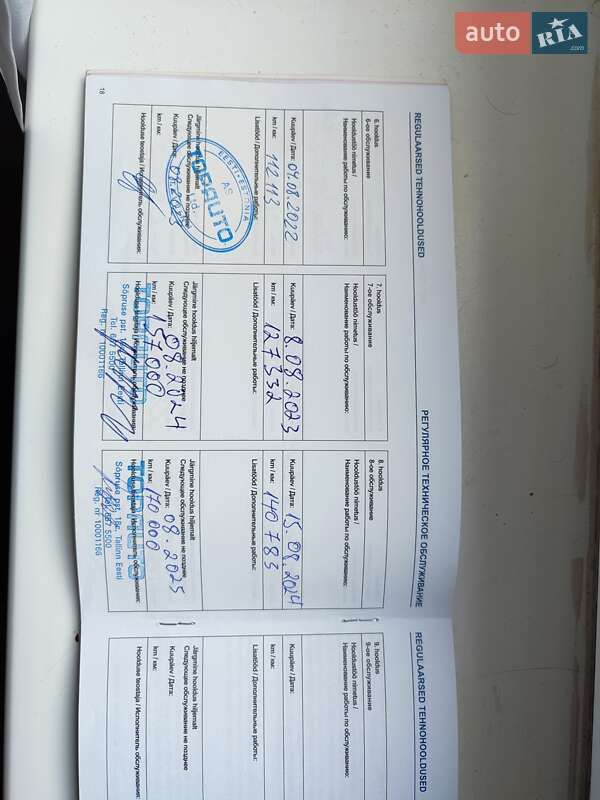 auto RIA .com
REGULAARSED TEHNOHOOLDUSED
РЕГУЛЯРНОЕ ТЕХНИЧЕСКОЕ ОБСЛУЖИВАНИЕ
6. hooldus
6-ое обслуживание
Hooldustöö nimetus /
Наименование работы по обслуживанию:
Kuupäev / Дата: 04.08.2022
km / км: 112 113
Lisatööd / Дополнительные работы:
Järgmine hooldus hiljemalt
Следующее обслуживание не позднее
Kuupäev / Дата:
km / км:
Hoolduse teostaja / Исполнитель обслуживания:
EESTI-ESTONIA
AS
TOPAUTO
Ltd.
18
7. hooldus
7-ое обслуживание
Hooldustöö nimetus /
Наименование работы по обслуживанию:
Kuupäev / Дата: 8.08.2023
km / км: 127332
Lisatööd / Дополнительные работы:
Järgmine hooldus hiljemalt
Следующее обслуживание не позднее
Kuupäev / Дата: 08.2024
km / км: 157000
Sõpruse pst.
Tallinn Eesti
Reg. nr 10001166
8. hooldus
8-ое обслуживание
Hooldustöö nimetus /
Наименование работы по обслуживанию:
Kuupäev / Дата: 15.08.2024
km / км: 140783
Lisatööd / Дополнительные работы:
Järgmine hooldus hiljemalt
Следующее обслуживание не позднее
Kuupäev / Дата: 08.2025
km / км: 170 000
Sõpruse pst. 18c, Tallinn Eesti
5500
Reg. nr 10001166
REGULAARSED TEHNOHOOLDUSED
9. hooldus
9-ое обслуживание
Hooldustöö nimetus /
Наименование работы по обслуживанию:
Kuupäev / Дата:
km / км:
Lisatööd / Дополнительные работы:
Järgmine hooldus hiljemalt
Следующее обслуживание не позднее
Kuupäev / Дата:
km / км:
Hoolduse teostaja / Исполнитель обслуживания: